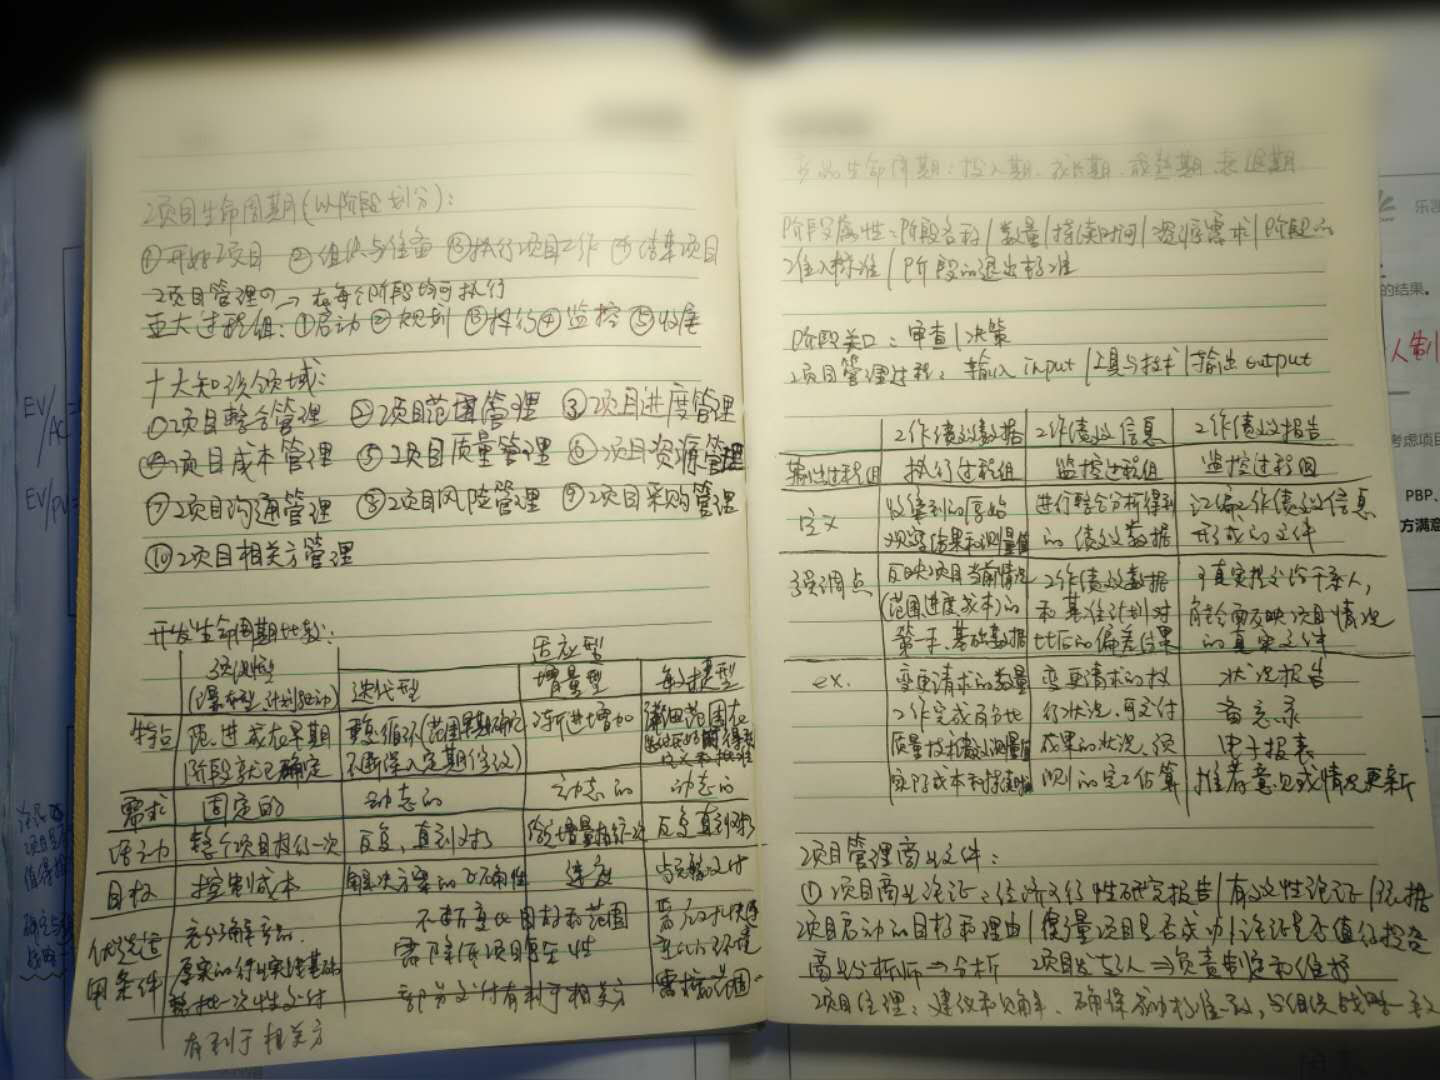 项目生命周期(以阶段划分):
①开始项目 ②组织与准备 ③执行项目工作 ④结束项目
项目管理的→在每个阶段均可执行
五大过程组:①启动 ②规划 ③执行 ④监控 ⑤收尾
十大知识领域:
①项目整合管理 ②项目范围管理 ③项目进度管理
④项目成本管理 ⑤项目质量管理 ⑥项目资源管理
⑦项目沟通管理 ⑧项目风险管理 ⑨项目采购管理
⑩项目相关方管理
开发生命周期比较:
适应型
预测型 迭代型 增量型 敏捷型
(瀑布型、计划驱动)
特点 范、进、成在早期 重复循环(范围早期确定 渐进增加
阶段就已确定 不断深入定期修改)
需求 固定的 动态的 动态的 动态的
活动 整个项目执行一次 反复,直到对 反复直到对
目标 控制成本 解决方案的正确性 速度
优先运 充分了解产品 不断变化目标和范围
用条件 厚实的行业实践基础 需降低项目复杂性
整批一次性交付 部分交付有利于相关方
有利于相关方
产品生命周期:投入期、成长期、成熟期、衰退期
阶段属性:阶段名称|数量|持续时间|资源需求|阶段的
准入标准|阶段的退出标准
阶段关口:审查|决策
项目管理过程:输入input|工具与技术|输出output
工作绩效数据 工作绩效信息 工作绩效报告
输出过程组 执行过程组 监控过程组 监控过程组
定义 收集到的原始 进行整合分析得到 汇编工作绩效信息
观察结果和测量值 的绩效数据 形成的文件
强调点 反映项目当前情况 工作绩效数据 真实提交给干系人,
(范围进度成本)的 和基准计划对 能全面反映项目情况
第一手、基础数据 比后的偏差结果 的真实文件
ex. 变更请求的数量 变更请求的执 状况报告
工作完成百分比 行状况、可交付 备忘录
质量技术绩效测量值 成果的状况、预 电子报表
测的完工估算 推荐意见或情况更新
项目管理商业文件:
①项目商业论证:经济可行性研究报告|有效性论证|依据
项目启动的目标和理由|衡量项目是否成功|论证是否值得投资
商业分析师⇒分析 项目发起人⇒负责制定和维护
项目经理:建议和见解、确保成功标准一致,与组织战略一致
EV/AC=
EV/PV=
的结果。
考虑项目
PBP、
方满意